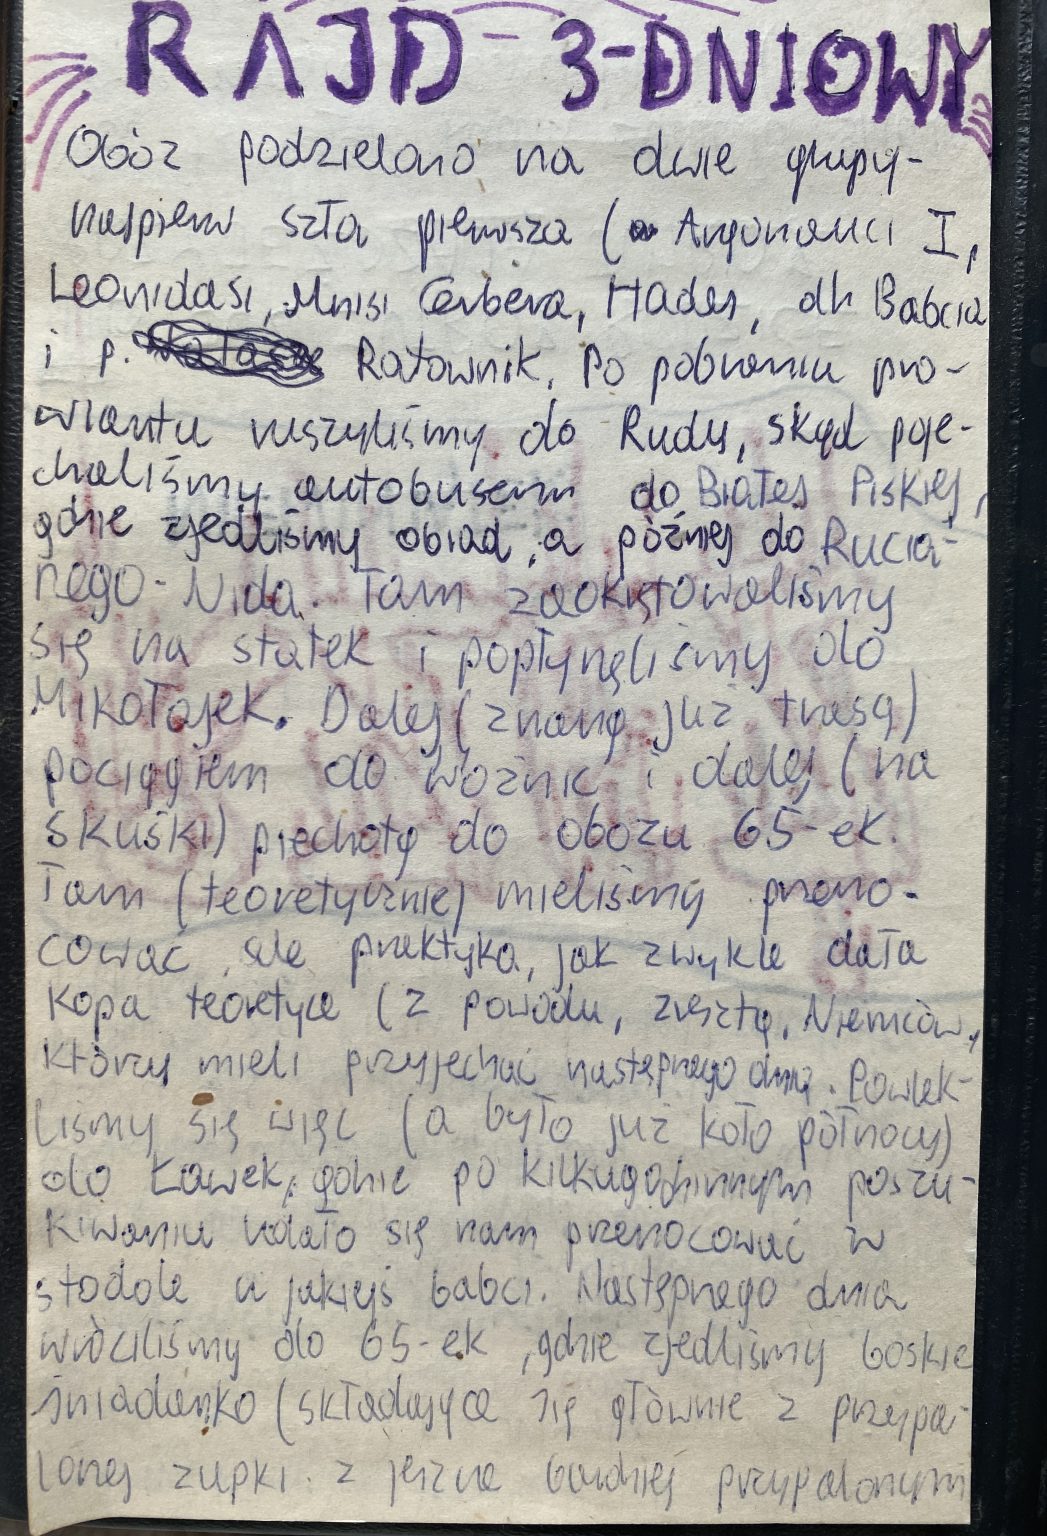 RAJD 3-DNIOWY
Obóz podzielono na dwie grupy-
najpierw szła pierwsza (Argonauci I,
Leonidasi, Mnisi Cerbera, Hades, dh Babcia
i p. Ratownik. Po pobraniu pro-
wiantu ruszyliśmy do Rudy, skąd poje-
chaliśmy autobusem do Białej Piskiej,
gdzie zjedliśmy obiad, a później do Rucia-
nego-Nida. Tam zaokrętowaliśmy
się na statek i popłynęliśmy do
Mikołajek. Dalej (znaną już trasą)
pociągiem do Woźnic i dalej (na
skuśki) piechotą do obozu 65-ek.
Tam (teoretycznie) mieliśmy przeno-
cować, ale praktyka, jak zwykle dała
kopa teoretyce (z powodu, zresztą, Niemców,
którzy mieli przyjechać następnego dnia. Powlek-
liśmy się więc (a było już koło północy)
do Ławek, gdzie po kilkugodzinnym poszu-
kiwaniu udało się nam przenocować w
stodole u jakiejś babci. Następnego dnia
wróciliśmy do 65-ek, gdzie zjedliśmy boskie
śniadanko (składające się głównie z przypa-
lonej zupki z jeszcze bardziej przypalonymi